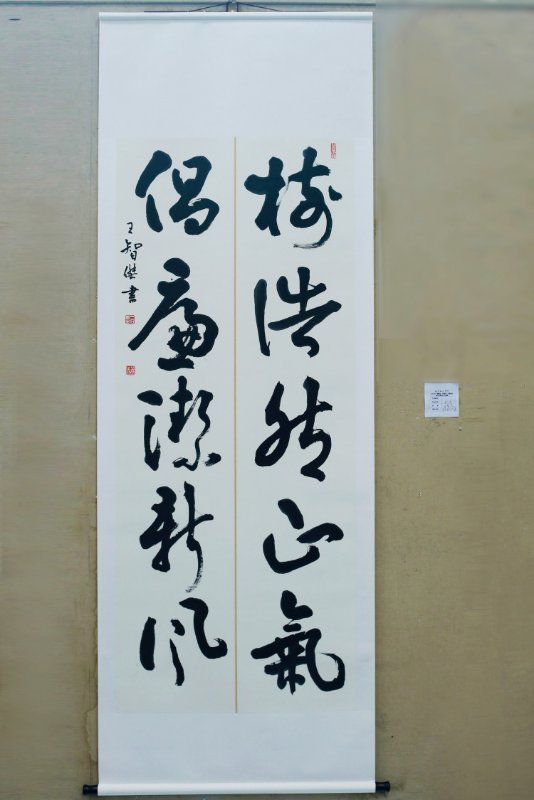 樹浩然正氣
倡廉潔新風
王智傑書